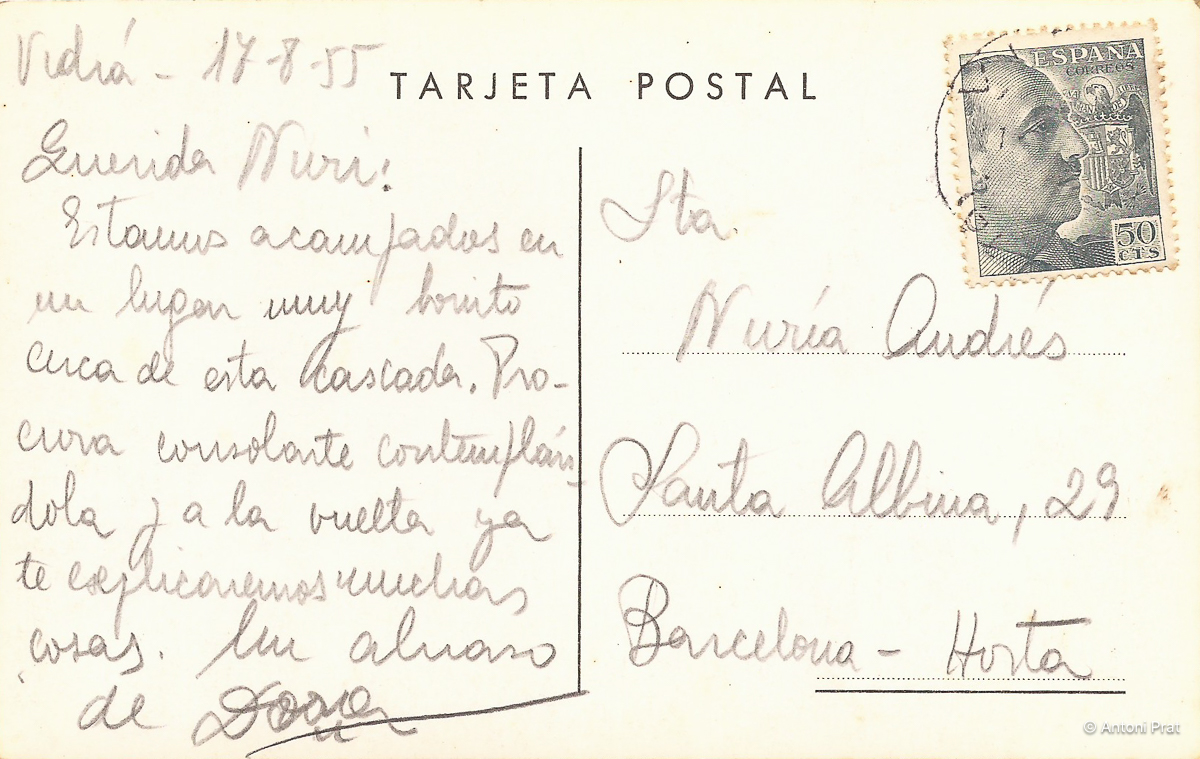 Vidrá - 17-8-55
TARJETA POSTAL
Querida Nuri:
Estamos acampados en
un lugar muy bonito
cerca de esta cascada. Pro-
cura consolarte contemplán-
dola y a la vuelta ya
te explicaremos muchas
cosas. Un abrazo
de
ESPAÑA
CORREOS
50
CTS
Sta.
Nuría Andrés
Santa Albina, 29
Barcelona - Horta
© Antoni Prat